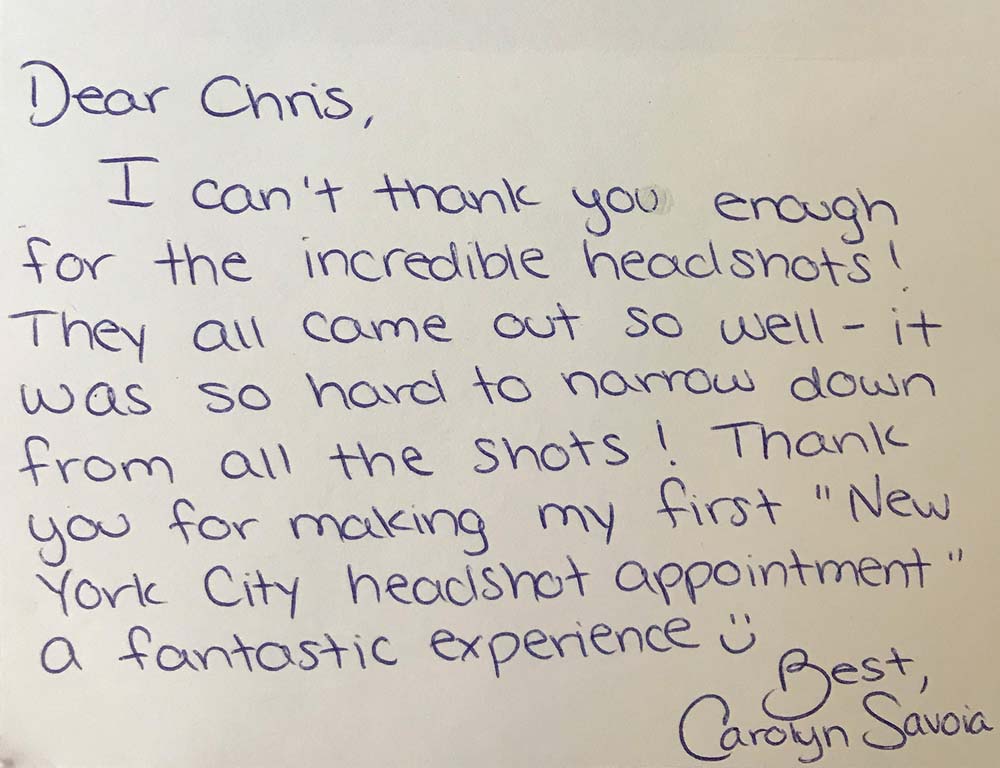 Dear Chris,
I can't thank you enough
for the incredible headshots!
They all came out so well - it
was so hard to narrow down
from all the shots! Thank
you for making my first "New
York City headshot appointment"
a fantastic experience :)
Best,
Carolyn Savoia